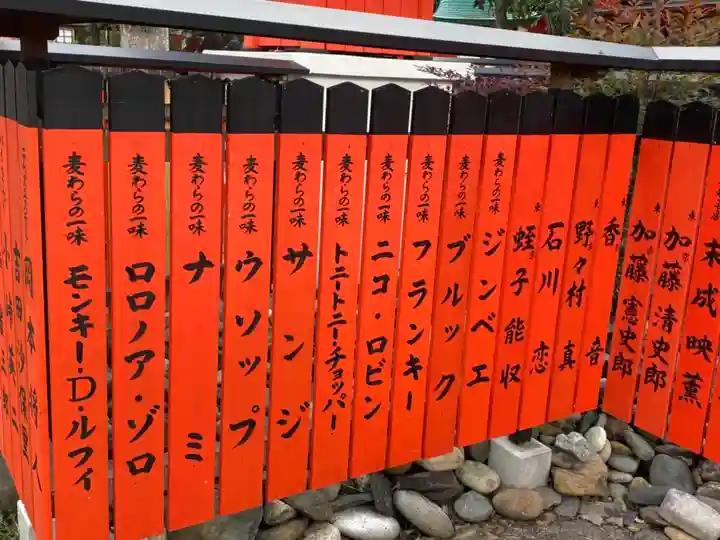 麦わらの一味 モンキー・D・ルフィ
麦わらの一味 ロロノア・ゾロ
麦わらの一味 ナミ
麦わらの一味 ウソップ
麦わらの一味 サンジ
麦わらの一味 トニートニー・チョッパー
麦わらの一味 ニコ・ロビン
麦わらの一味 フランキー
麦わらの一味 ブルック
麦わらの一味 ジンベエ
東 蛭子能収
東 石川恋
東 野々村真
東 香音
東 加藤憲史郎
東 加藤清史郎
末成映薫